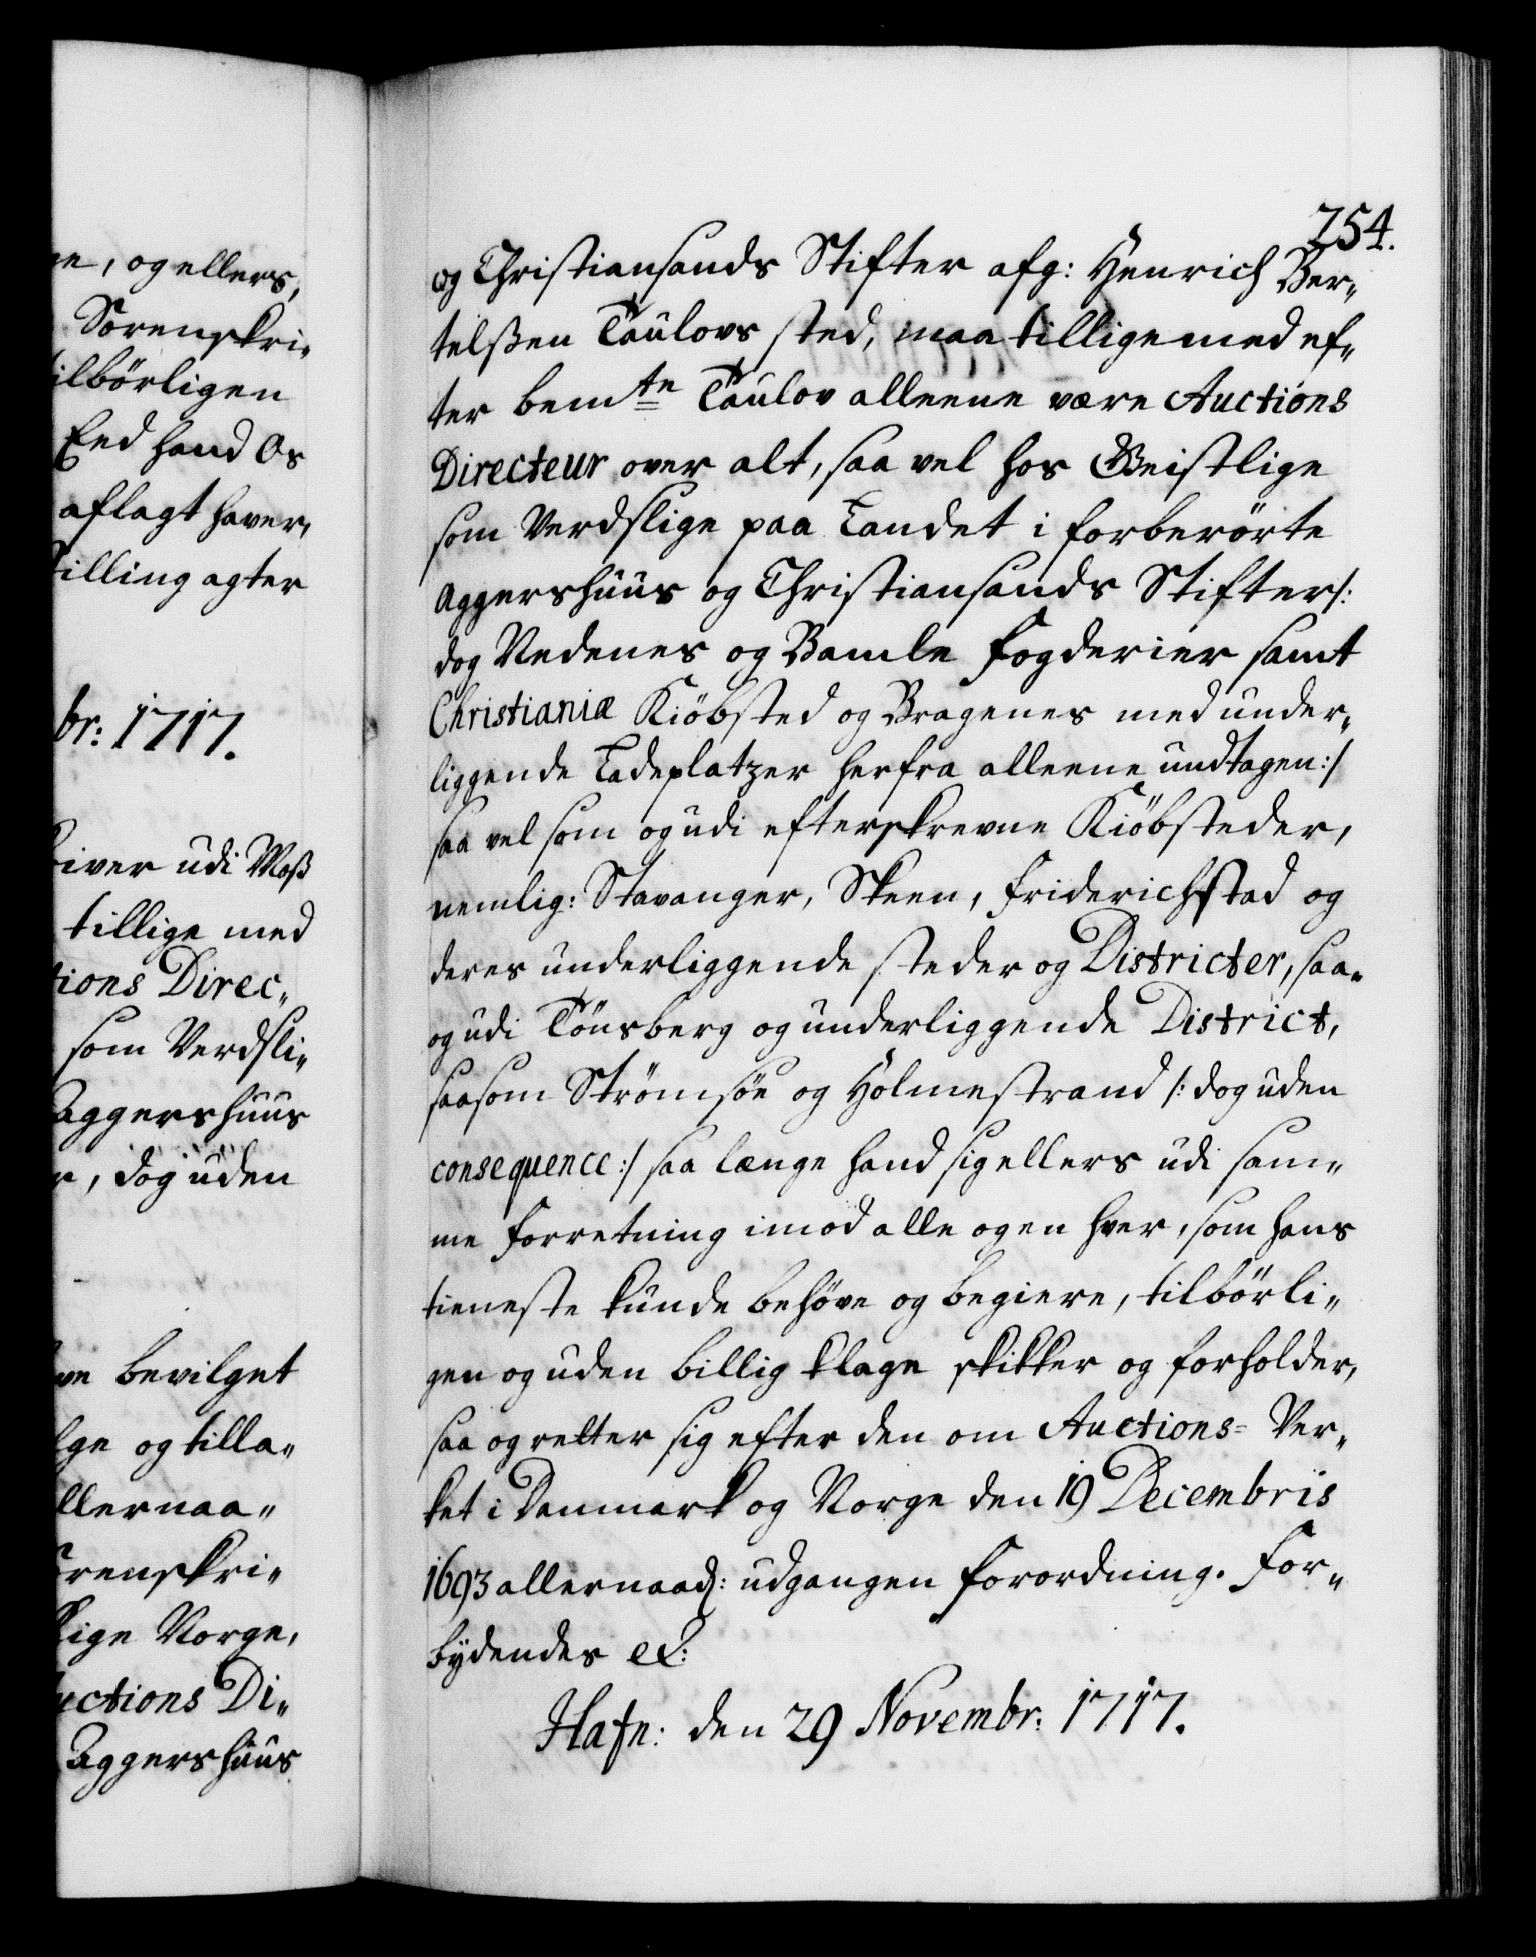 ne, og ellers,
Sorenskri„
tilbörligen
End hand Os
aflagt haver,
stilling agter
br: 1717.
skriver udi Moss
tillige med
tions Direc„
som Verdsli„
Aggershuus
r, dog uden
ve bevilget
lge og tilla„
llernaa„
orenskri„
Rige Norge,
uctions Di„
Aggershuus
254.
og Christiansands Stifter afg: Henrich Ber„
telsßen Taulovs sted, maa tilligemed ef„
ter bemte Taulov alleene være Auctions
Directeur over alt, saa vel hos Geistlige
som Verdslige paa Landet i forberörte
Aggershuus og Christiansands Stifter /:
dog Nedenes og Bamle Fogderier samt
Christianiæ Kiöbsted og Bragenes med under„
liggende Ladeplatzer herfra alleene undtagen :/
saa vel som og udi efterskrevne Kiöbsteder,
nemlig: Stavanger, Skeen, Friderichstad og
deres underliggende steder og Districter, saa„
og udi Tönsberg og underliggende District,
saasom Strömsöe og Holmestrand /: dog uden
consequence :/ saa længe hand sig ellers udi sam„
me Forretning imod alle og en hver, som hans
tieneste kunde behöve og begiere, tilbörli„
gen og uden billig klage skikker og forholder,
saa og retter sig efter den om Auctions= Ver„
ket i Danmark og Norge den 19 Decembris
1693 allernaad: udgangen Forordning. For„
bydendes etc:
Hafn: den 29 Novembr: 1717.